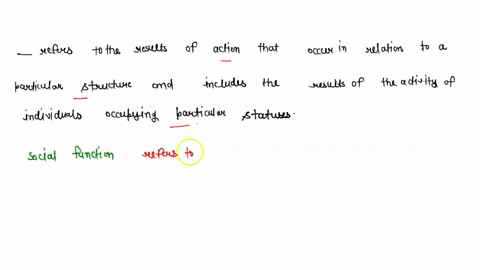 __ refers to the results of action that occur in relation to a
particular structure and includes the results of the activity of
individuals occupying particular statuses.
social function refers to